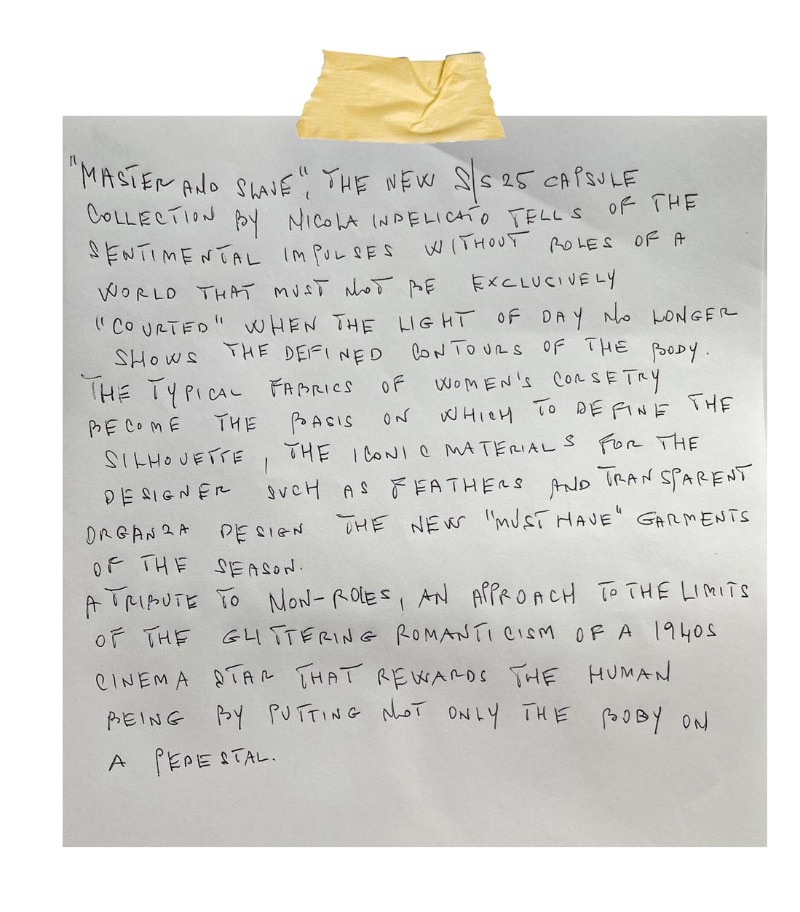 "MASTER AND SLAVE", THE NEW S/S 25 CAPSULE
COLLECTION BY NICOLA INDELICATO TELLS OF THE
SENTIMENTAL IMPULSES WITHOUT ROLES OF A
WORLD THAT MUST NOT BE EXCLUSIVELY
"COURTED" WHEN THE LIGHT OF DAY NO LONGER
SHOWS THE DEFINED CONTOURS OF THE BODY.
THE TYPICAL FABRICS OF WOMEN'S CORSETRY
BECOME THE BASIS ON WHICH TO DEFINE THE
SILHOUETTE, THE ICONIC MATERIALS FOR THE
DESIGNER SUCH AS FEATHERS AND TRANSPARENT
ORGANZA DESIGN THE NEW "MUST HAVE" GARMENTS
OF THE SEASON.
A TRIBUTE TO NON-ROLES, AN APPROACH TO THE LIMITS
OF THE GLITTERING ROMANTICISM OF A 1940S
CINEMA STAR THAT REWARDS THE HUMAN
BEING BY PUTTING NOT ONLY THE BODY ON
A PEDESTAL.